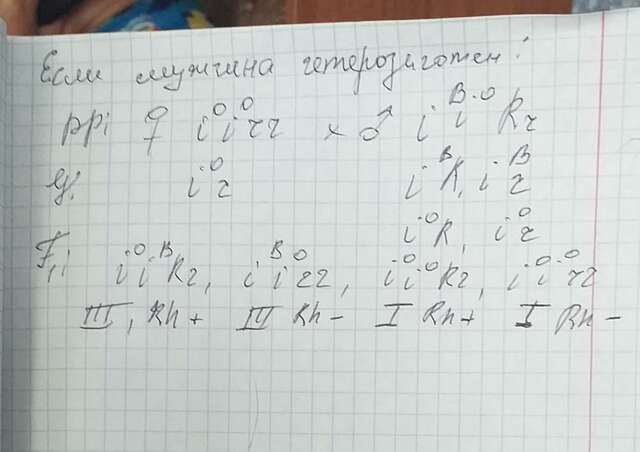 Если мужчина гетерозиготен:
pp: ♀ i⁰i⁰rr × ♂ iᴮi⁰Rr
g: i⁰r iᴮR, iᴮr
i⁰R, i⁰r
F₁: i⁰iᴮRr, iᴮi⁰rr, i⁰i⁰Rr, i⁰i⁰rr
III, Rh+ III Rh- I Rh+ I Rh-